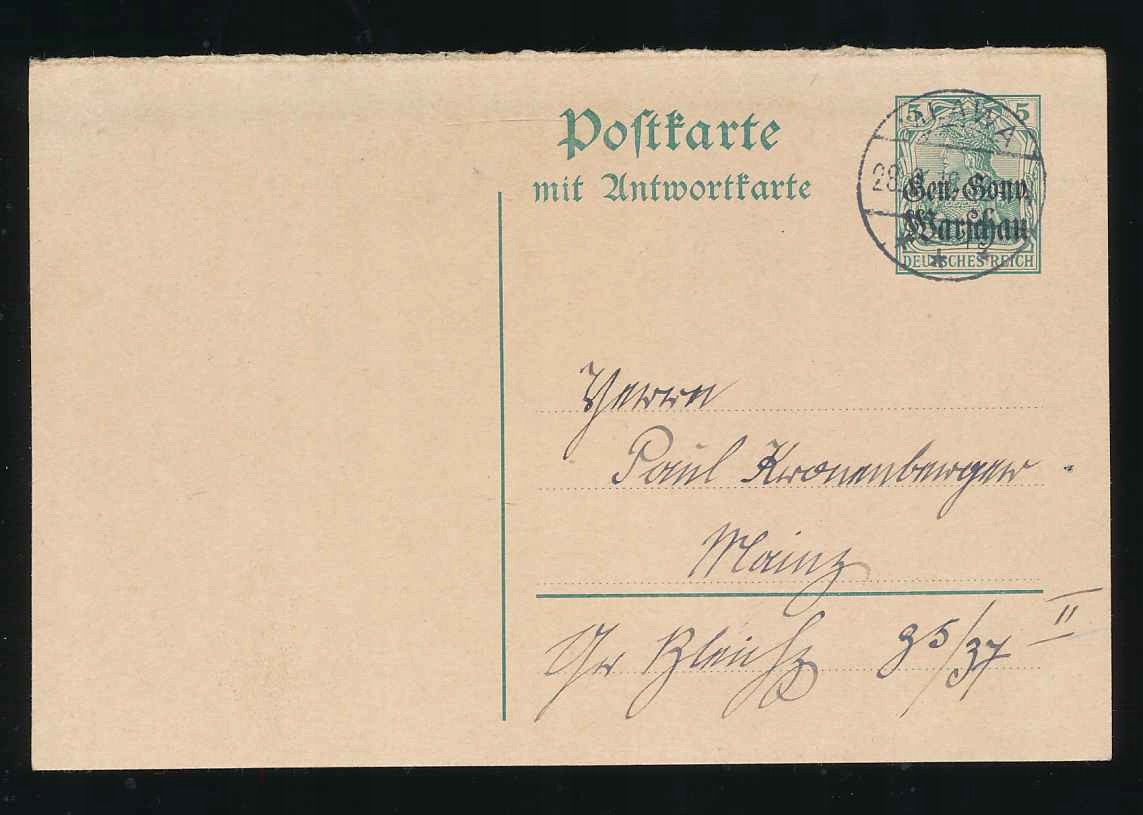 Postkarte
mit Antwortkarte
5 5
MŁAWA
Gen.-Gouv.
Warschau
DEUTSCHES REICH
Herrn
Paul Kronenberger
Mainz
Gr Bleiche 35/37 II